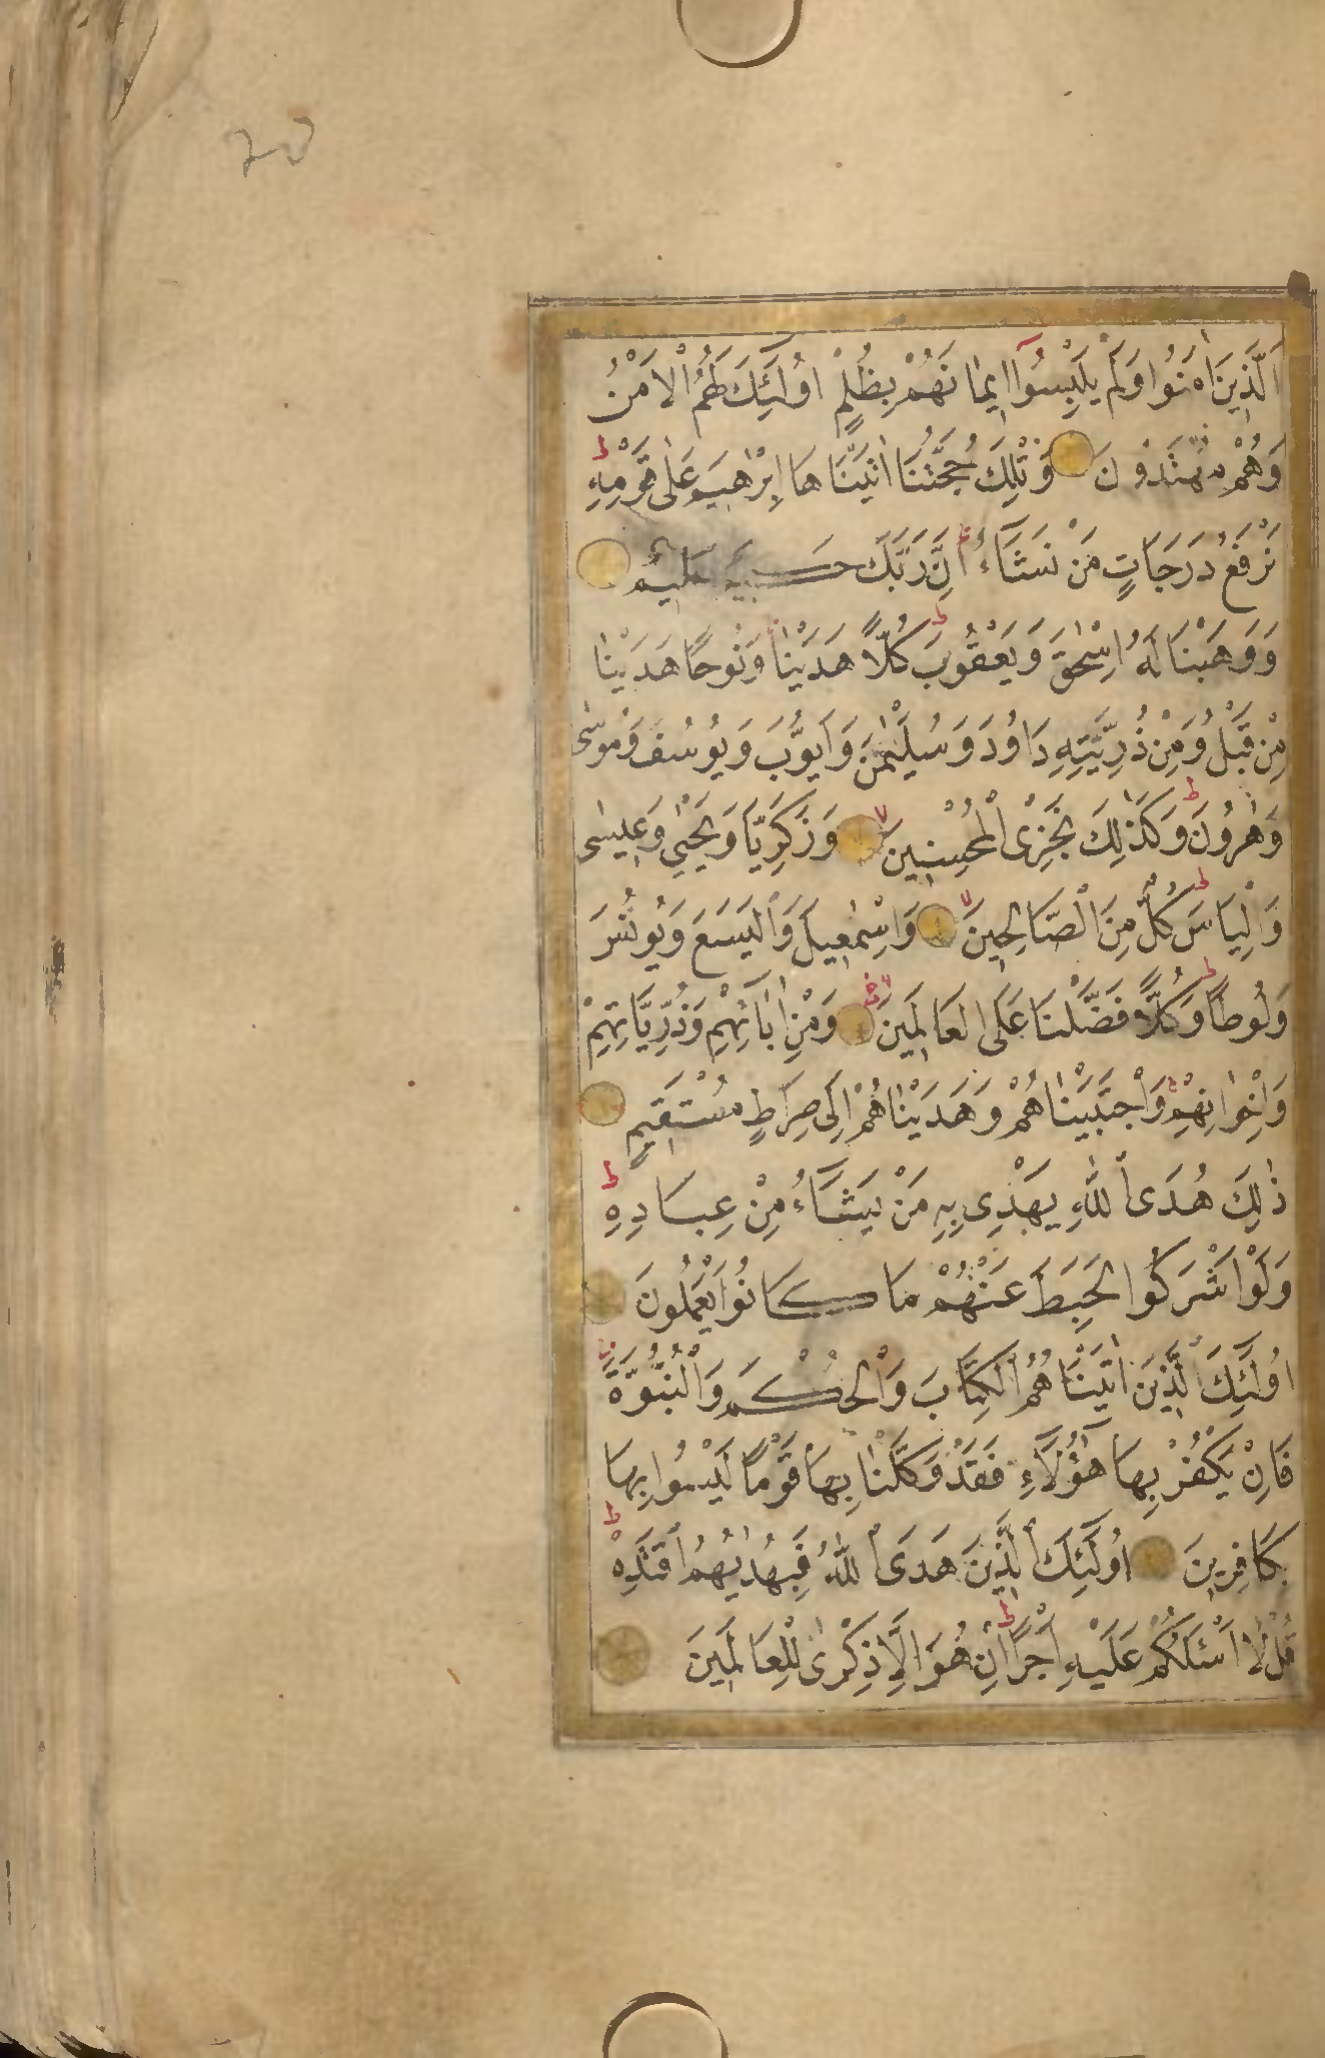 اَلَّذِينَ اٰمَنُوا وَلَمْ يَلْبِسُوٓا اِيمَانَهُمْ بِظُلْمٍ اُولٰٓئِكَ لَهُمُ الْاَمْنُ
وَهُمْ مُهْتَدُونَ وَتِلْكَ حُجَّتُنَا اٰتَيْنَاهَا اِبْرٰهِيمَ عَلٰى قَوْمِهِ ط
نَرْفَعُ دَرَجَاتٍ مَنْ نَشَآءُ اِنَّ رَبَّكَ حَكِيمٌ عَلِيمٌ
وَوَهَبْنَا لَهُ اِسْحٰقَ وَيَعْقُوبَ ط كُلًّا هَدَيْنَا وَنُوحًا هَدَيْنَا
مِنْ قَبْلُ وَمِنْ ذُرِّيَّتِهِ دَاوُدَ وَسُلَيْمٰنَ وَاَيُّوبَ وَيُوسُفَ وَمُوسٰى
وَهٰرُونَ ط وَكَذٰلِكَ نَجْزِى الْمُحْسِنِينَ لا وَزَكَرِيَّا وَيَحْيٰى وَعِيسٰى
وَاِلْيَاسَ ط كُلٌّ مِنَ الْصَّالِحِينَ لا وَاِسْمٰعِيلَ وَالْيَسَعَ وَيُونُسَ
وَلُوطًا ط وَكُلًّا فَضَّلْنَا عَلَى الْعَالَمِينَ لا وَمِنْ اٰبَآئِهِمْ وَذُرِّيَّاتِهِمْ
وَاِخْوَانِهِمْ وَاجْتَبَيْنَاهُمْ وَهَدَيْنَاهُمْ اِلٰى صِرَاطٍ مُسْتَقِيمٍ
ذٰلِكَ هُدَى اللّٰهِ يَهْدِى بِهِ مَنْ يَشَآءُ مِنْ عِبَادِهِ ط
وَلَوْ اَشْرَكُوا لَحَبِطَ عَنْهُمْ مَا كَانُوا يَعْمَلُونَ
اُولٰٓئِكَ الَّذِينَ اٰتَيْنَاهُمُ الْكِتَابَ وَالْحُكْمَ وَالْنُبُوَّةَ
فَاِنْ يَكْفُرْ بِهَا هٰٓؤُلَآءِ فَقَدْ وَكَّلْنَا بِهَا قَوْمًا لَيْسُوا بِهَا
بِكَافِرِينَ اُولٰٓئِكَ الَّذِينَ هَدَى اللّٰهُ فَبِهُدٰيهُمُ اقْتَدِهْ ط
قُلْ لَا اَسْئَلُكُمْ عَلَيْهِ اَجْرًا ط اِنْ هُوَ اِلَّا ذِكْرٰى لِلْعَالَمِينَ